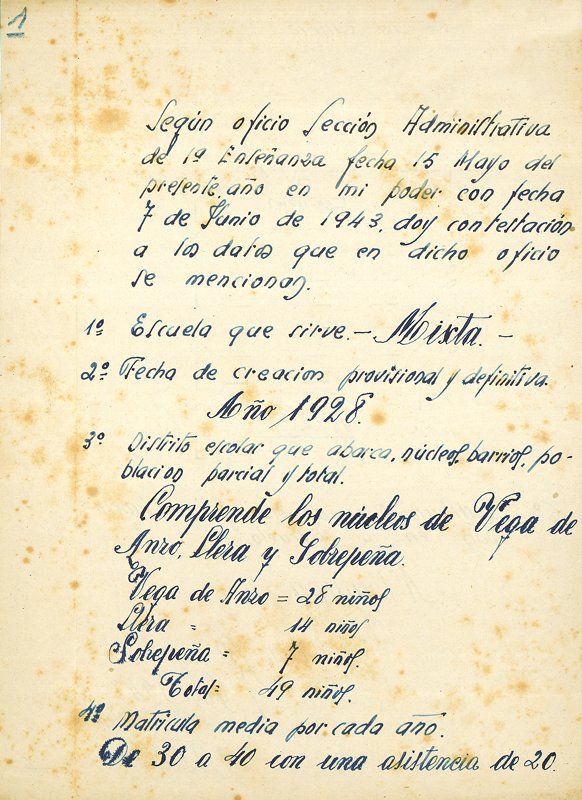 1
Según oficio Sección Administrativa
de 1ª Enseñanza fecha 15 Mayo del
presente año en mi poder con fecha
7 de Junio de 1943, doy contestación
a los datos que en dicho oficio
se mencionan.
1º Escuela que sirve.- Mixta.-
2º Fecha de creacion provisional y definitiva.
Año 1928.
3º Distrito escolar que abarca, núcleos, barrios, po-
blacion parcial y total.
Comprende los núcleos de Vega de
Anzo, Llera y Sobrepeña.
Vega de Anzo = 28 niños
Llera = 14 niños
Sobrepeña = 7 niños.
Total = 49 niños.
4º Matrícula media por cada año.
De 30 a 40 con una asistencia de 20.